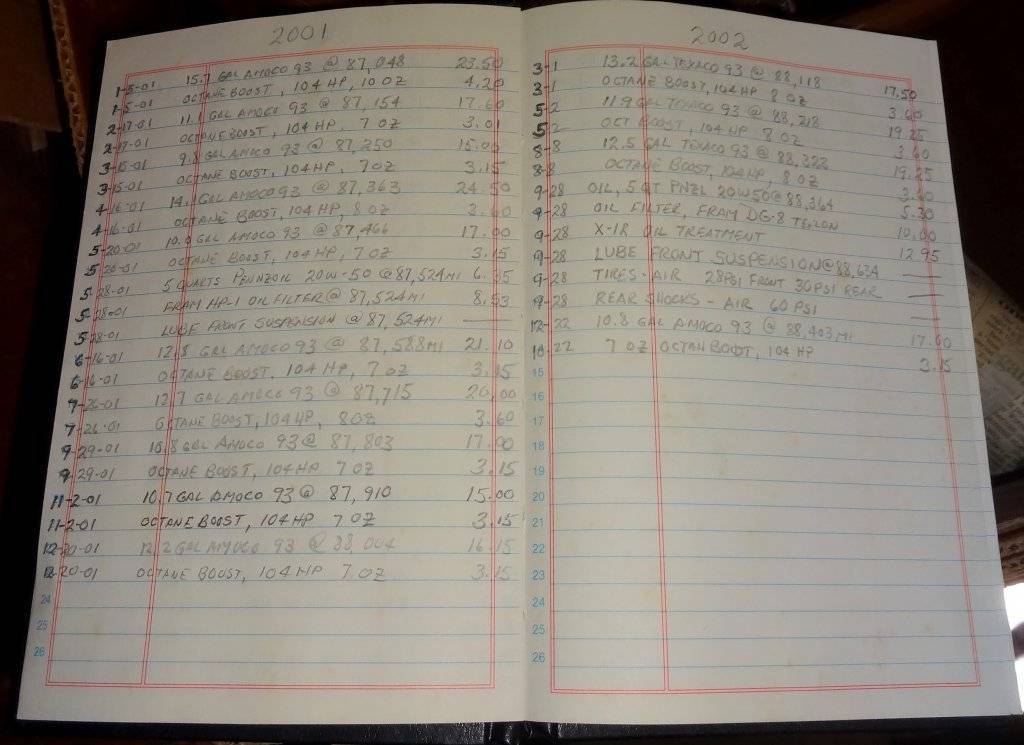 2001
1-5-01 15.7 GAL AMOCO 93 @ 87,048 23.50
1-5-01 OCTANE BOOST, 104 HP, 10 OZ 4.20
2-17-01 11.1 GAL AMOCO 93 @ 87,154 17.60
2-17-01 OCTANE BOOST, 104 HP, 7 OZ 3.01
3-15-01 9.8 GAL AMOCO 93 @ 87,250 15.00
3-15-01 OCTANE BOOST, 104 HP, 7 OZ 3.15
4-16-01 GAL AMOCO 93 @ 87,363 24.50
4-16-01 OCTANE BOOST, 104 HP, 8 OZ 3.60
5-20-01 10.9 GAL AMOCO 93 @ 87,466 17.00
5-20-01 OCTANE BOOST, 104 HP, 7 OZ 3.15
5-28-01 5 QUARTS PENNZOIL 20W-50 @ 87,524 MI 6.35
5-28-01 FRAM HP-1 OIL FILTER @ 87,524 MI 8.53
5-28-01 LUBE FRONT SUSPENSION @ 87,524 MI
6-16-01 12.8 GAL AMOCO 93 @ 87,588 MI 21.10
6-16-01 OCTANE BOOST, 104 HP, 7 OZ 3.15
7-26-01 12.7 GAL AMOCO 93 @ 87,715 20.00
7-26-01 OCTANE BOOST, 104 HP, 8 OZ 3.60
9-29-01 10.8 GAL AMOCO 93 @ 87,803 17.00
9-29-01 OCTANE BOOST, 104 HP 7 OZ 3.15
11-2-01 10.7 GAL AMOCO 93 @ 87,910 15.00
11-2-01 OCTANE BOOST, 104 HP 7 OZ 3.15
12-20-01 12.2 GAL AMOCO 93 @ 88,004 16.15
12-20-01 OCTANE BOOST, 104 HP 7 OZ 3.15
24
25
26
2002
3-1 13.2 GAL TEXACO 93 @ 88,118 17.50
3-1 OCTANE BOOST, 104 HP 8 OZ 3.60
5-2 11.9 GAL TEXACO 93 @ 88,218 19.25
5-2 OCT BOOST, 104 HP 8 OZ 3.60
8-8 12.5 GAL TEXACO 93 @ 88,323 19.25
8-8 OCTANE BOOST, 104 HP 8 OZ 3.60
9-28 OIL, 5 QT PNZL 20W50 @ 88,364 5.30
9-28 OIL FILTER, FRAM DG-8 TEFLON 10.00
9-28 X-1R OIL TREATMENT 12.95
9-28 LUBE FRONT SUSPENSION @ 88,634
9-28 TIRES - AIR 28 PSI FRONT 30 PSI REAR
9-28 REAR SHOCKS - AIR 60 PSI
12-22 10.8 GAL AMOCO 93 @ 88,403 MI 17.00
22 7 OZ OCTAN BOOST, 104 HP 3.15
15
16
17
18
19
20
21
22
23
24
25
26